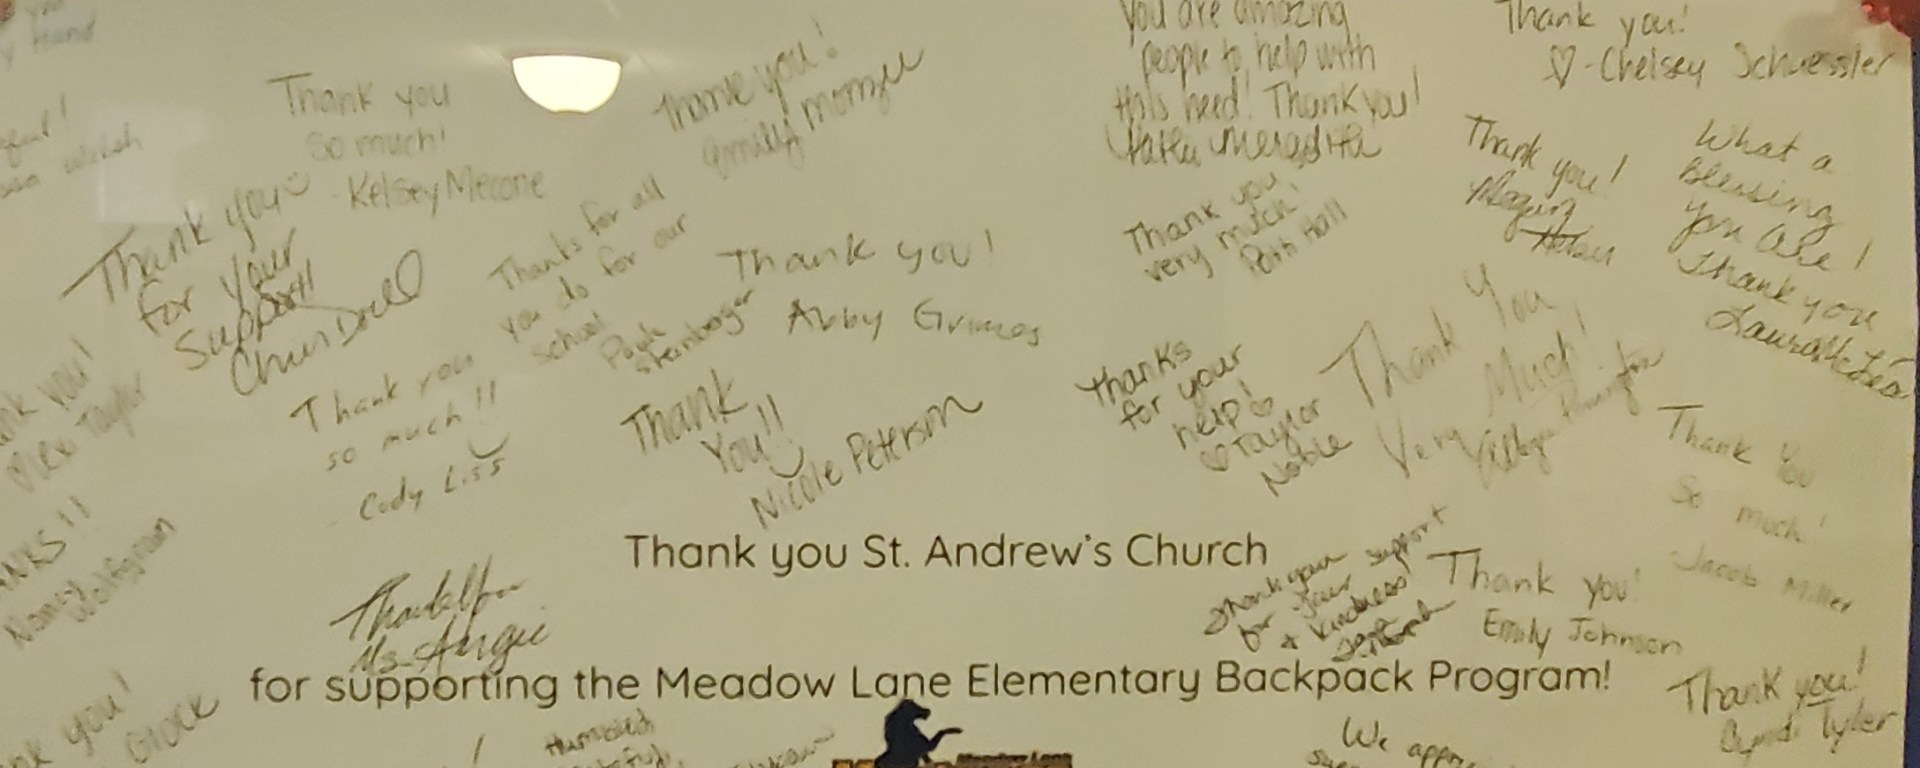 Hand
Welch
Thank you
so much!
- Kelsey Mecone
Thank you!
Emily
you are amazing
people to help with
this need! Thank you!
Meredith
Thank you!
♡ - Chelsey Schuessler
Thank you!
Megan
What a
Blessing
you are!
Thank you
Thank you
for your
support!
Thanks for all
you do for our
school
Thank you!
Abby Grimes
Thank you
very much!
Hall
Thank you
so much!!
- Cody Liss
Thank
You!!
Nicole Peterson
Thanks
for your
help! ♡
♡ Taylor
Noble
Thank You
Very Much!
you!
Taylor
Nancy
Wolfgram
Thank You
So much!
Jacob Miller
Thank you St. Andrew's Church
for supporting the Meadow Lane Elementary Backpack Program!
Thank you
Ms. Angie
Thank you
for your support
+ kindness!
Thank you!
Emily Johnson
Thank you!
Tyler
you!
Glock
We